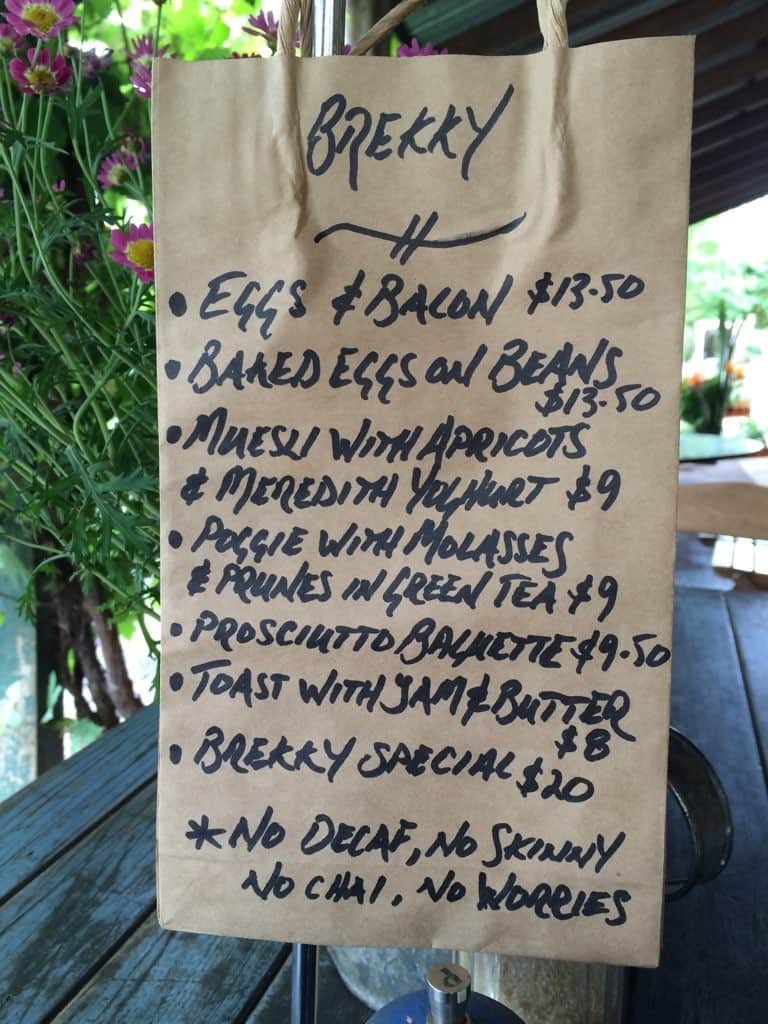 BREKKY
• EGGS & BACON $13.50
• BAKED EGGS ON BEANS
$13.50
• MUESLI WITH APRICOTS
& MEREDITH YOGHURT $9
• POGGIE WITH MOLASSES
& PRUNES IN GREEN TEA $9
• PROSCIUTTO BAGUETTE $9.50
• TOAST WITH JAM & BUTTER
$8
• BREKKY SPECIAL $20
* NO DECAF, NO SKINNY
NO CHAI, NO WORRIES
P